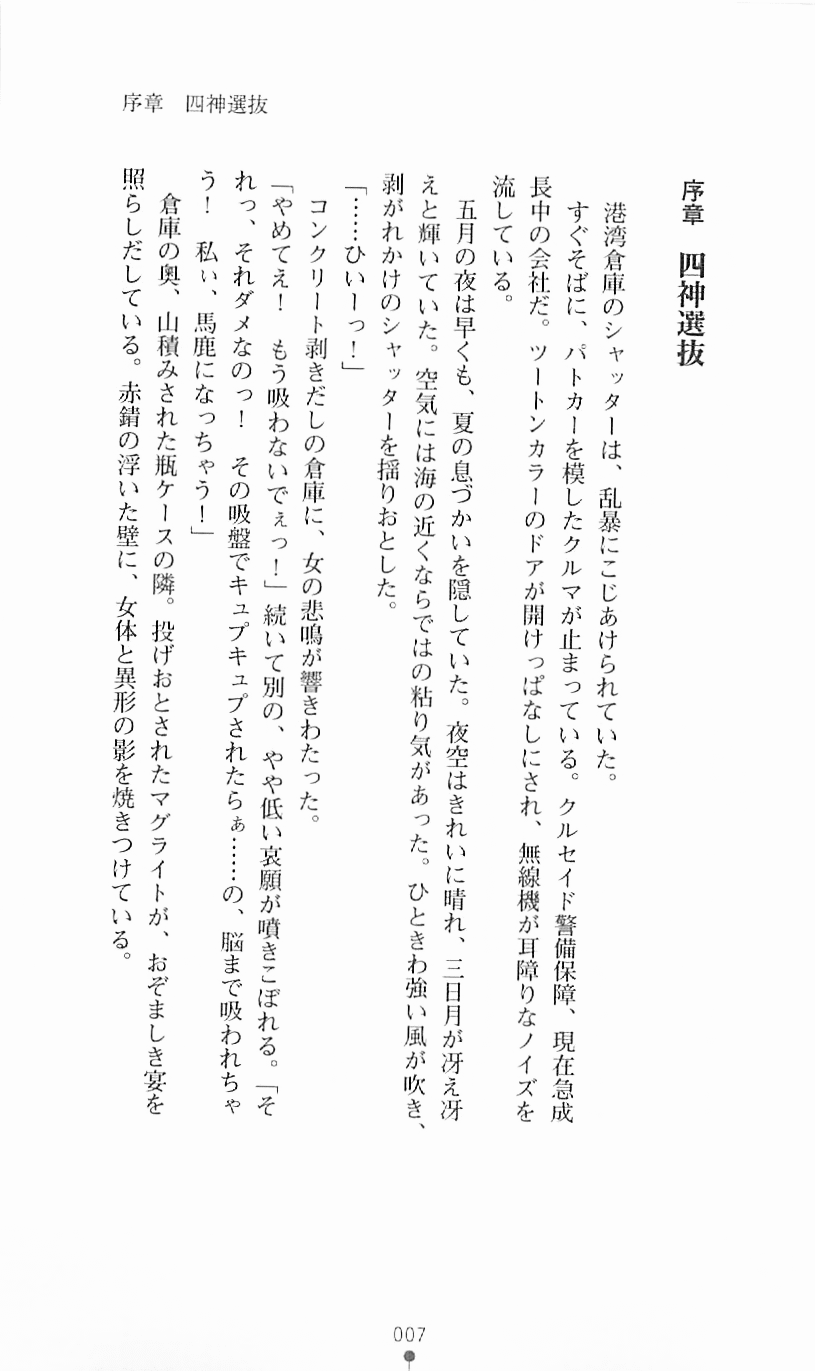 序章　四神選抜
序章　四神選抜
　港湾倉庫のシャッターは、乱暴にこじあけられていた。
　すぐそばに、パトカーを模したクルマが止まっている。クルセイド警備保障、現在急成
長中の会社だ。ツートンカラーのドアが開けっぱなしにされ、無線機が耳障りなノイズを
流している。
　五月の夜は早くも、夏の息づかいを隠していた。夜空はきれいに晴れ、三日月が冴え冴
えと輝いていた。空気には海の近くならではの粘り気があった。ひときわ強い風が吹き、
剥がれかけのシャッターを揺りおとした。
「……ひいーっ！」
　コンクリート剥きだしの倉庫に、女の悲鳴が響きわたった。
「やめてえ！　もう吸わないでぇっ！」続いて別の、やや低い哀願が噴きこぼれる。「そ
れっ、それダメなのっ！　その吸盤でキュプキュプされたらぁ……の、脳まで吸われちゃ
う！　私ぃ、馬鹿になっちゃう！」
　倉庫の奥、山積みされた瓶ケースの隣。投げおとされたマグライトが、おぞましき宴を
照らしだしている。赤錆の浮いた壁に、女体と異形の影を焼きつけている。
007